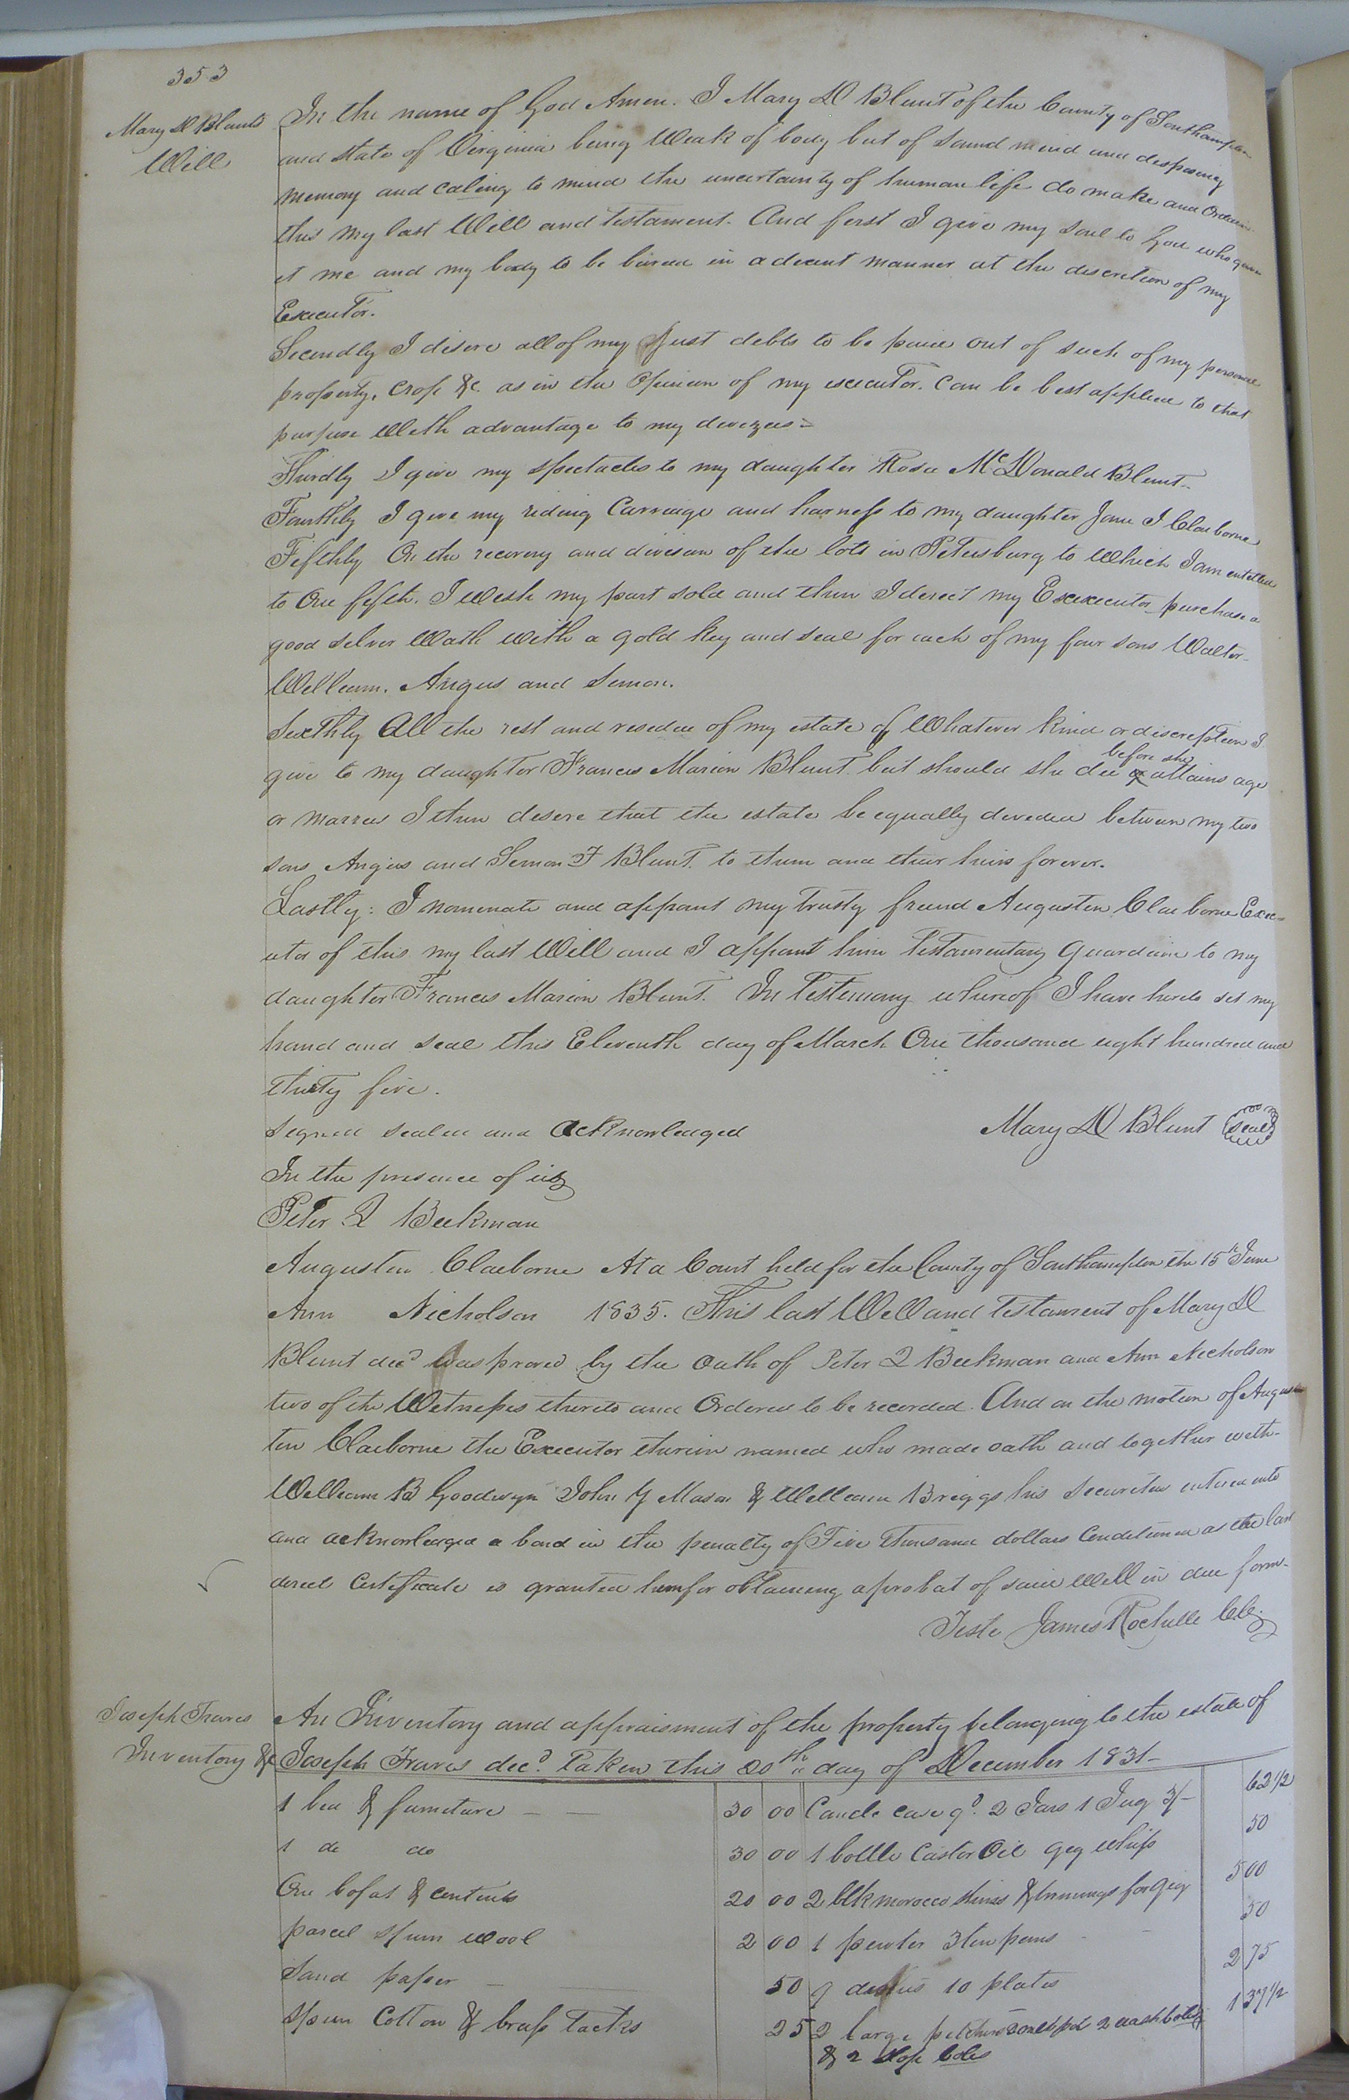 353
Mary D Blunts
Will
In the name of God Amen. I Mary D Blunt of the County of Southampton
and state of Virginia being Weak of body but of sound mind and disposing
memory and caling to mind the uncertainty of human life do make and Ordain
this my last Will and testament. And first I give my soul to God who gave
it me and my body to be buried in a decent manner at the discretion of my
Executor.
Secondly I disire all of my just debts to be paid out of such of my personal
property, crop &c. as in the Opinion of my executor. can be best applied to that
purpose With advantage to my devizees=
Thirdly I give my spectacles to my daughter Rosa McDonald Blunt.
Fourthly I give my riding Carriage and harness to my daughter Jane J Claiborne
Fifthly On the recovery and division of the lots in Petersburg to Which I am entitled
to One fifth. I Wish my part sold and then I direct my Exexecutor purchase a
good silver Wath with a gold key and seal for each of my four sons Walter
William. Angus and Simon.
Sixthly All the rest and residue of my estate of Whatever kind or discription I
give to my daughter Frances Marion Blunt but should she die before she attains age
or marries I then desire that the estate be equally divided between my two
sons Angus and Simon F Blunt. to them and their heirs forever.
Lastly: I nominate and appoint my trusty friend Augustin Claiborne Exec=
utor of this my last Will and I appoint him Testamentary guardian to my
daughter Frances Marion Blunt. In Testimony whereof I have hereto set my
hand and seal this Eleventh day of March One thousand eight hundred and
thirty five.
Signed sealed and acknowledged Mary D Blunt seal
In the presence of us
Peter J Beekman
Augustin Claiborne At a Court held for the County of Southampton the 15th June
Ann Nicholson 1835. This last Will and Testament of Mary D
Blunt decd was proved by the oath of Peter J Beekman and Ann Nicholson
two of the Witnesses thereto and Ordered to be recorded. And on the motion of Augus
tin Claiborne the Executor therein named who made oath and together with
William B Goodwyn John Y Mason & William Briggs his securities entered into
and acknowledged a bond in the penalty of Five Thousand dollars Conditioned as the law
direct Certificate is granted him for obtaining a probat of said Will in due form.
Teste James Rochelle C.C.
Joseph Travis
Inventory &c
An Inventory and appraisment of the property belonging to the estate of
Joseph Travis decd. Taken this 20th day of December 1831
1 bed & furniture 30 00 Candle case qd. 2 Jars 1 Jug 3/ 62 1/2
1 do do 30 00 1 bottle Castor Oil gig whip 50
One bofat & contents 20 00 2 blk morocco skins & trimings for gig 5 00
parcel spun wool 2 00 1 pewter 3 tin pans 50
Sand paper 50 9 dishes 10 plates 2 75
Spun Cotton & brass tacks 25 2 large pitchers 2 wash boles 1 37 1/2
& 2 slop boles